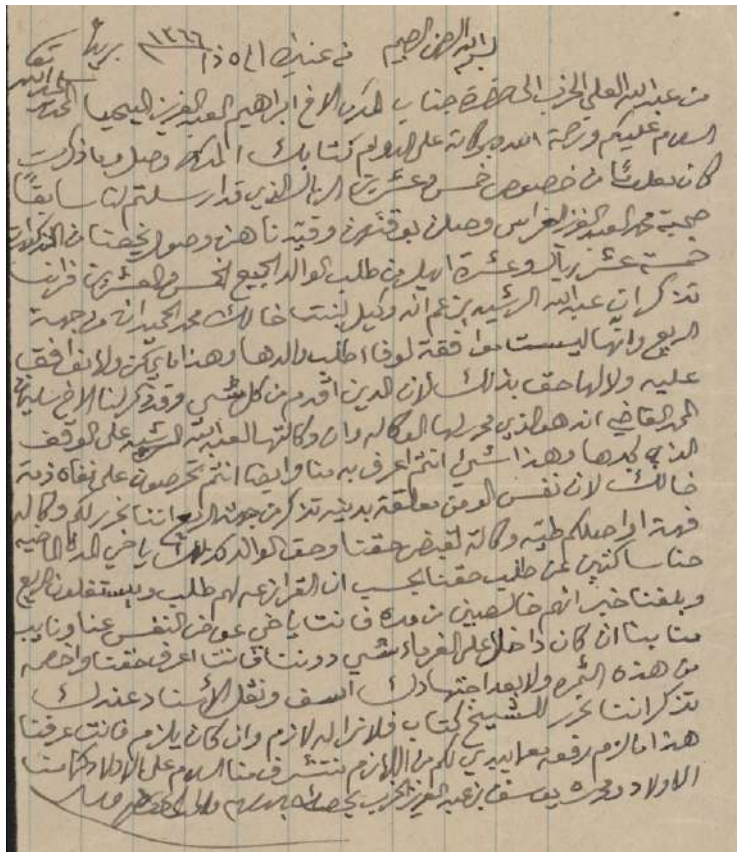 بسم الله الرحمن الرحيم في عنيزة الى ٥ ذا ١٣٦٦ بريدة
من عبدالله العلي الخرب الى حضرة جناب المكرم الاخ ابراهيم العبدالعزيز اليحيا المحترم سلمه الله تعا
السلام عليكم ورحمة الله وبركاته على الدوام كتابك المكرم وصل وما ذكرت
كان معلوما من خصوص خمس وعشرين الريال الذي قد ارسلتم لنا سابقا
صحبة محمد العبدالعزيز وصلن بوقتهن وقيدناهن وصول يخصنا من المذكورات
خمسة عشر ريال وعشرة اريل من طلب الوالد الجميع الخمس والعشرين
تذكر ان عبدالله الرشيد يزعم انه وكيل لبنت خالك محمد الحميد انه من جهة
الريع وانها ليست موافقة لوفاء طلب والدها وهذا ما يمكن ولا نوافق
عليه ولا لها حق بذلك لان الدين اقدم من كل شي وقد ذكر لنا الاخ
الحمد القاضي انه هو الذي محرر لها الوكاله وان وكالتها لعبدالله الرشيد على الوقف
الذي لجدها وهذا شيء انتم اعرف به منا وايضا انتم تحرصون على نفاه ذمة
خالك لان نفس المومن معلقة بدينه تذكر من جهة الريع اننا نحرر لكم وكاله
فهذا واصلكم طيه وكالة لقبض حقنا وحق الوالد كذلك يا خي المدة الماضيه
حنا ساكتين عن طلب حقنا بحسب ان القرازعه لهم طلب ويستغلون الريع
وبلغنا خبر انهم خالصين من مده فانت يا خي عوض النفس عنا ونايب
منابنا ان كان داخل على الغرماء شي دوننا فانت اعرف حقنا واخصمه
من هذه الثمره ولا بعد اجتهادك اسف ونقل الأسناد عندك
تذكر اننا نحرر للشيخ كتاب فلا نرا له لازم وان كان يلزم فانت عرفنا
هذا ما لزم رفعه مع ما يبدي لكم من اللازم نتشرف منا السلام على الاولاد كما منا
الاولاد يوسف بن عبدالعزيز الخرب